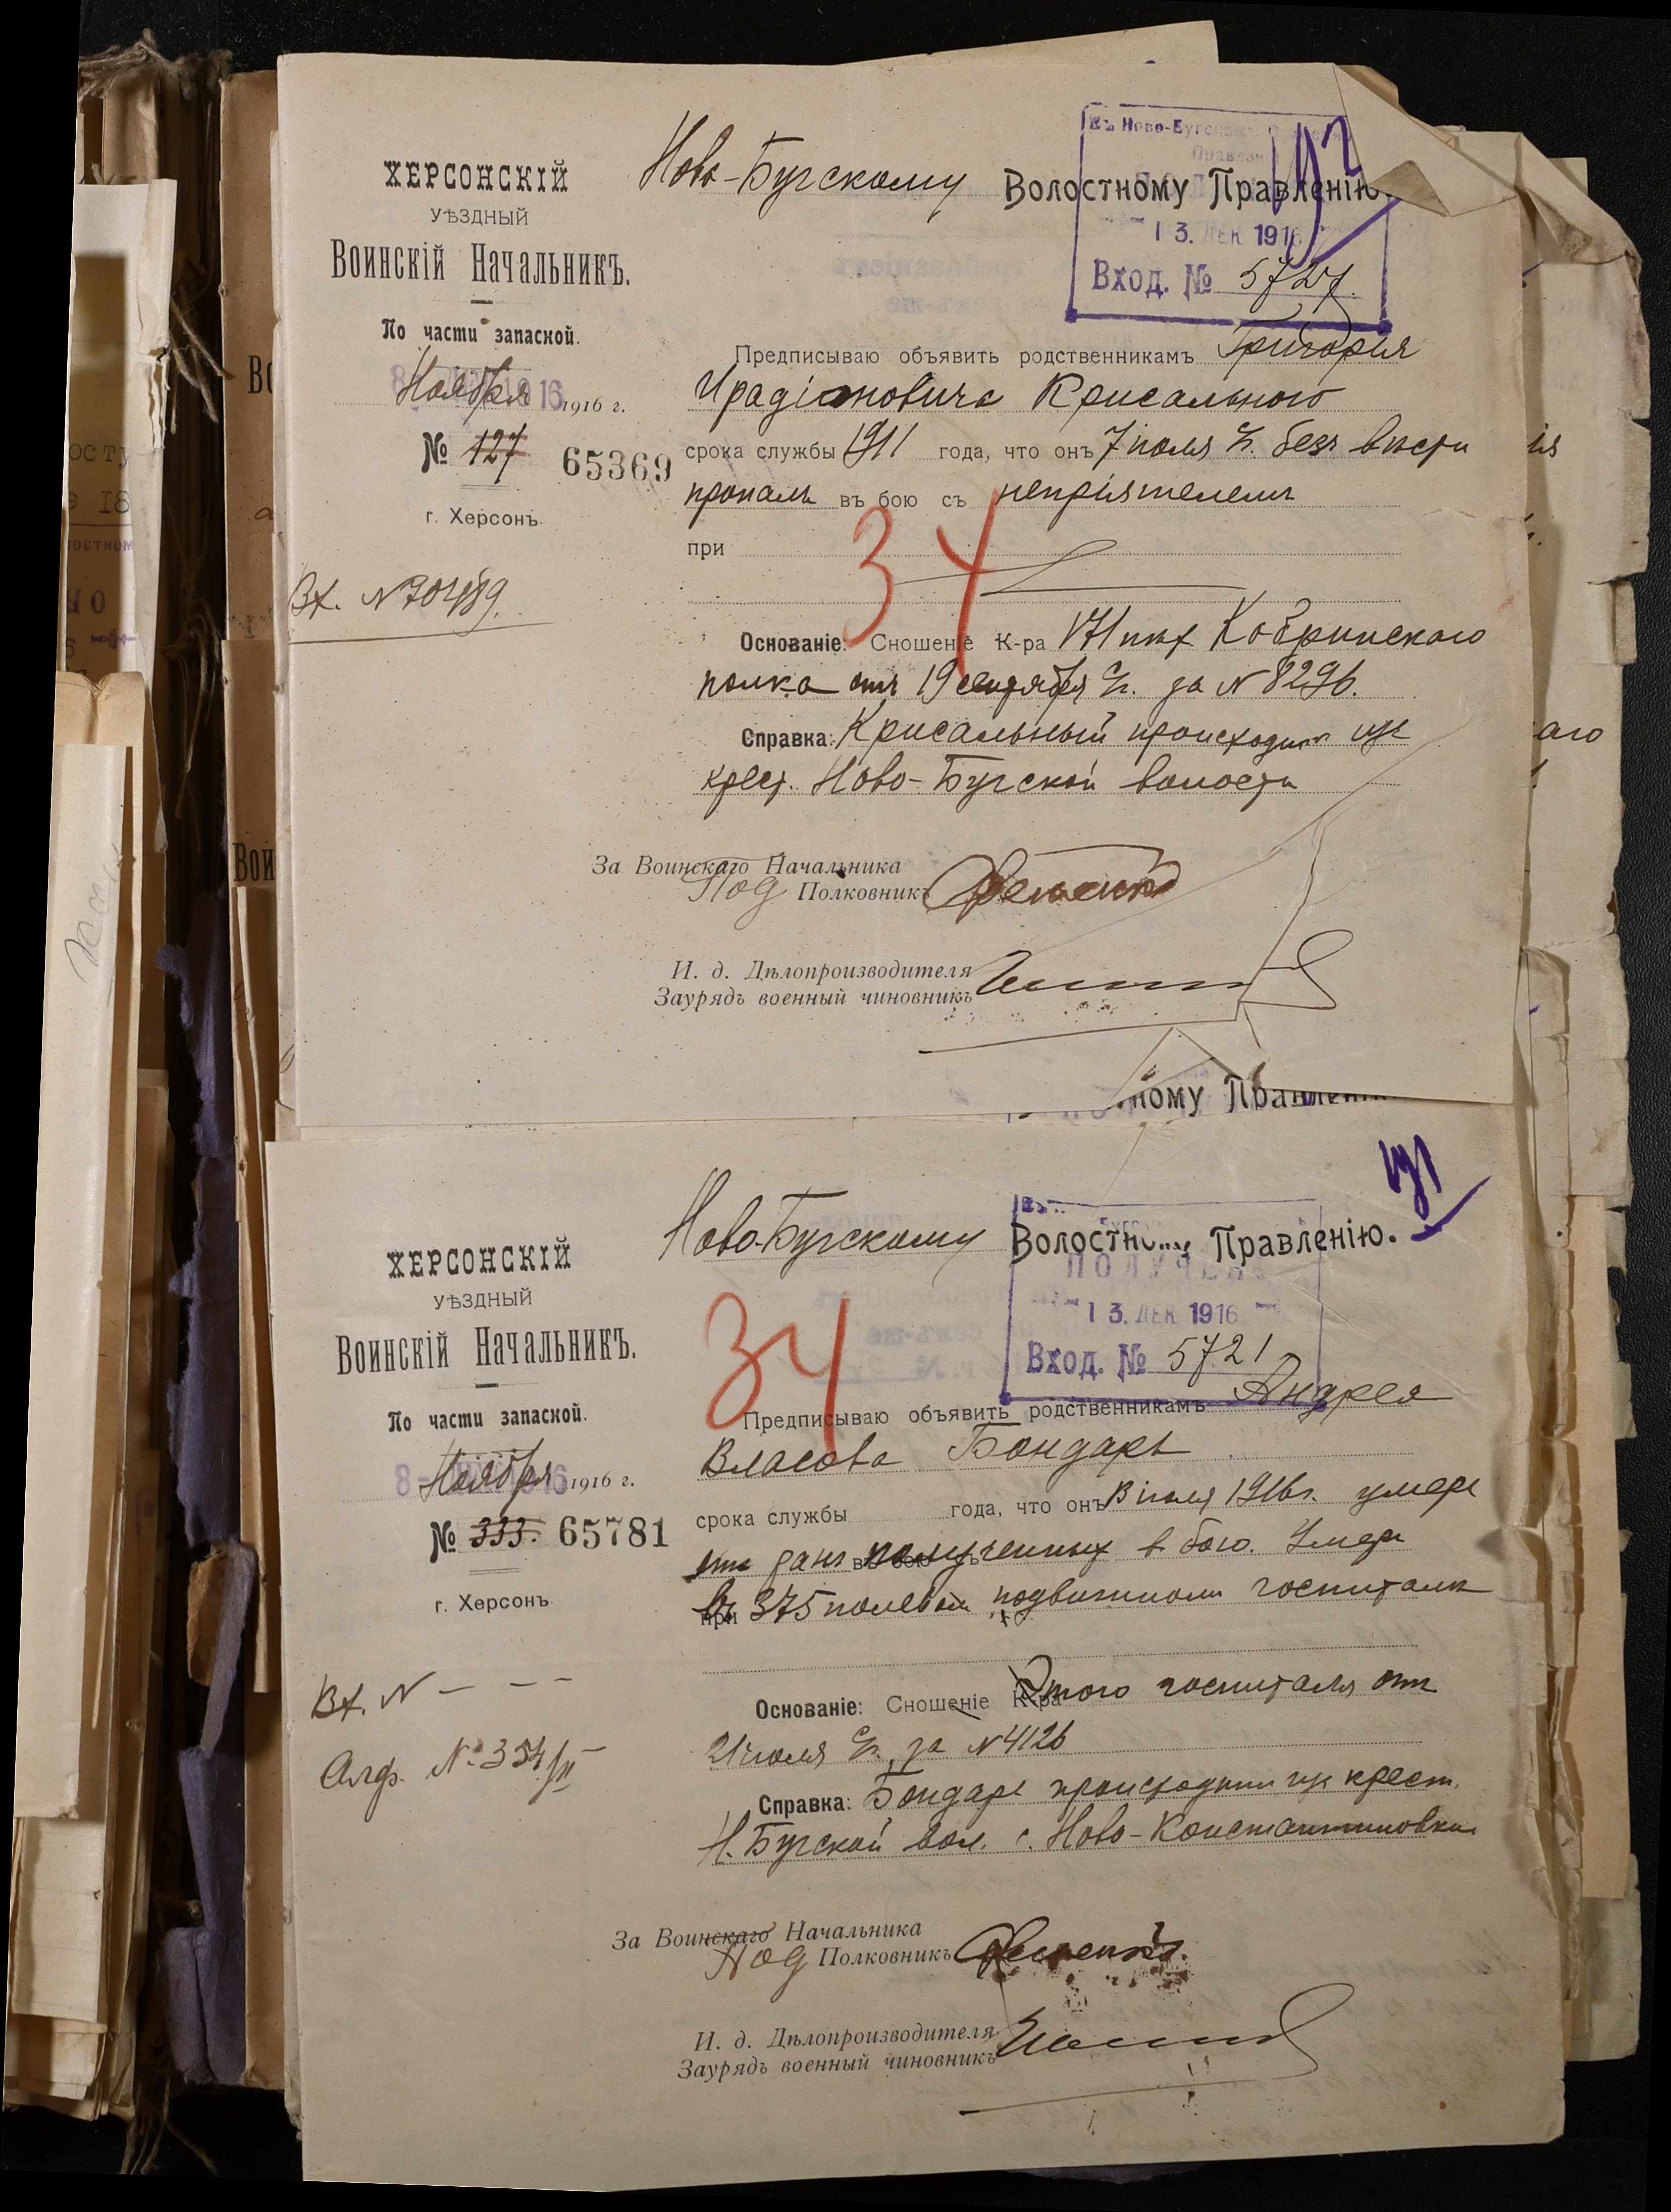 ХЕРСОНСКІЙ
УѢЗДНЫЙ
Воинскій Начальникъ.
По части запасной.
Ноября 1916 г.
№ 127 65369
г. Херсонъ
Вх. №
Ново-Бугскому Волостному Правленію.
13. ДЕК 1916
Вход. № 5727
Предписываю объявить родственникамъ Григорія
Крисального
срока службы 1911 года, что онъ 7 іюля с/г. безъ вѣсти
пропалъ въ бою съ непріятелемъ
при
34
Основаніе: Сношеніе К-ра 171 пѣх Кобринскаго
полка отъ 19 сентября с/г. за № 8296.
Справка: Крисальный происходитъ изъ
крест. Ново-Бугской волости
За Воинскаго Начальника
Под Полковникъ
И. д. Дѣлопроизводителя
Заурядъ военный чиновникъ
ному Правленію
ХЕРСОНСКІЙ
УѢЗДНЫЙ
Воинскій Начальникъ.
По части запасной.
Ноября 1916 г.
№ 333. 65781
г. Херсонъ
Вх. № – – –
Алф. №
Ново-Бугскому Волостному Правленію.
ПОЛУЧЕНО
13. ДЕК 1916
Вход. № 5721
34
Предписываю объявить родственникамъ Андрея
Власова Бондарь
срока службы года, что онъ іюля 1916 г. умеръ
отъ ранъ полученныхъ в бою. Умеръ
въ 375 полевом подвижномъ госпиталѣ
при
Основаніе: Сношеніе К-ра Этого госпиталя отъ
іюля с/г. за № 4126
Справка: Бондарь происходитъ изъ крест.
Н. Бугской вол. с. Ново-Константиновки
За Воинскаго Начальника
Под Полковникъ
И. д. Дѣлопроизводителя
Заурядъ военный чиновникъ